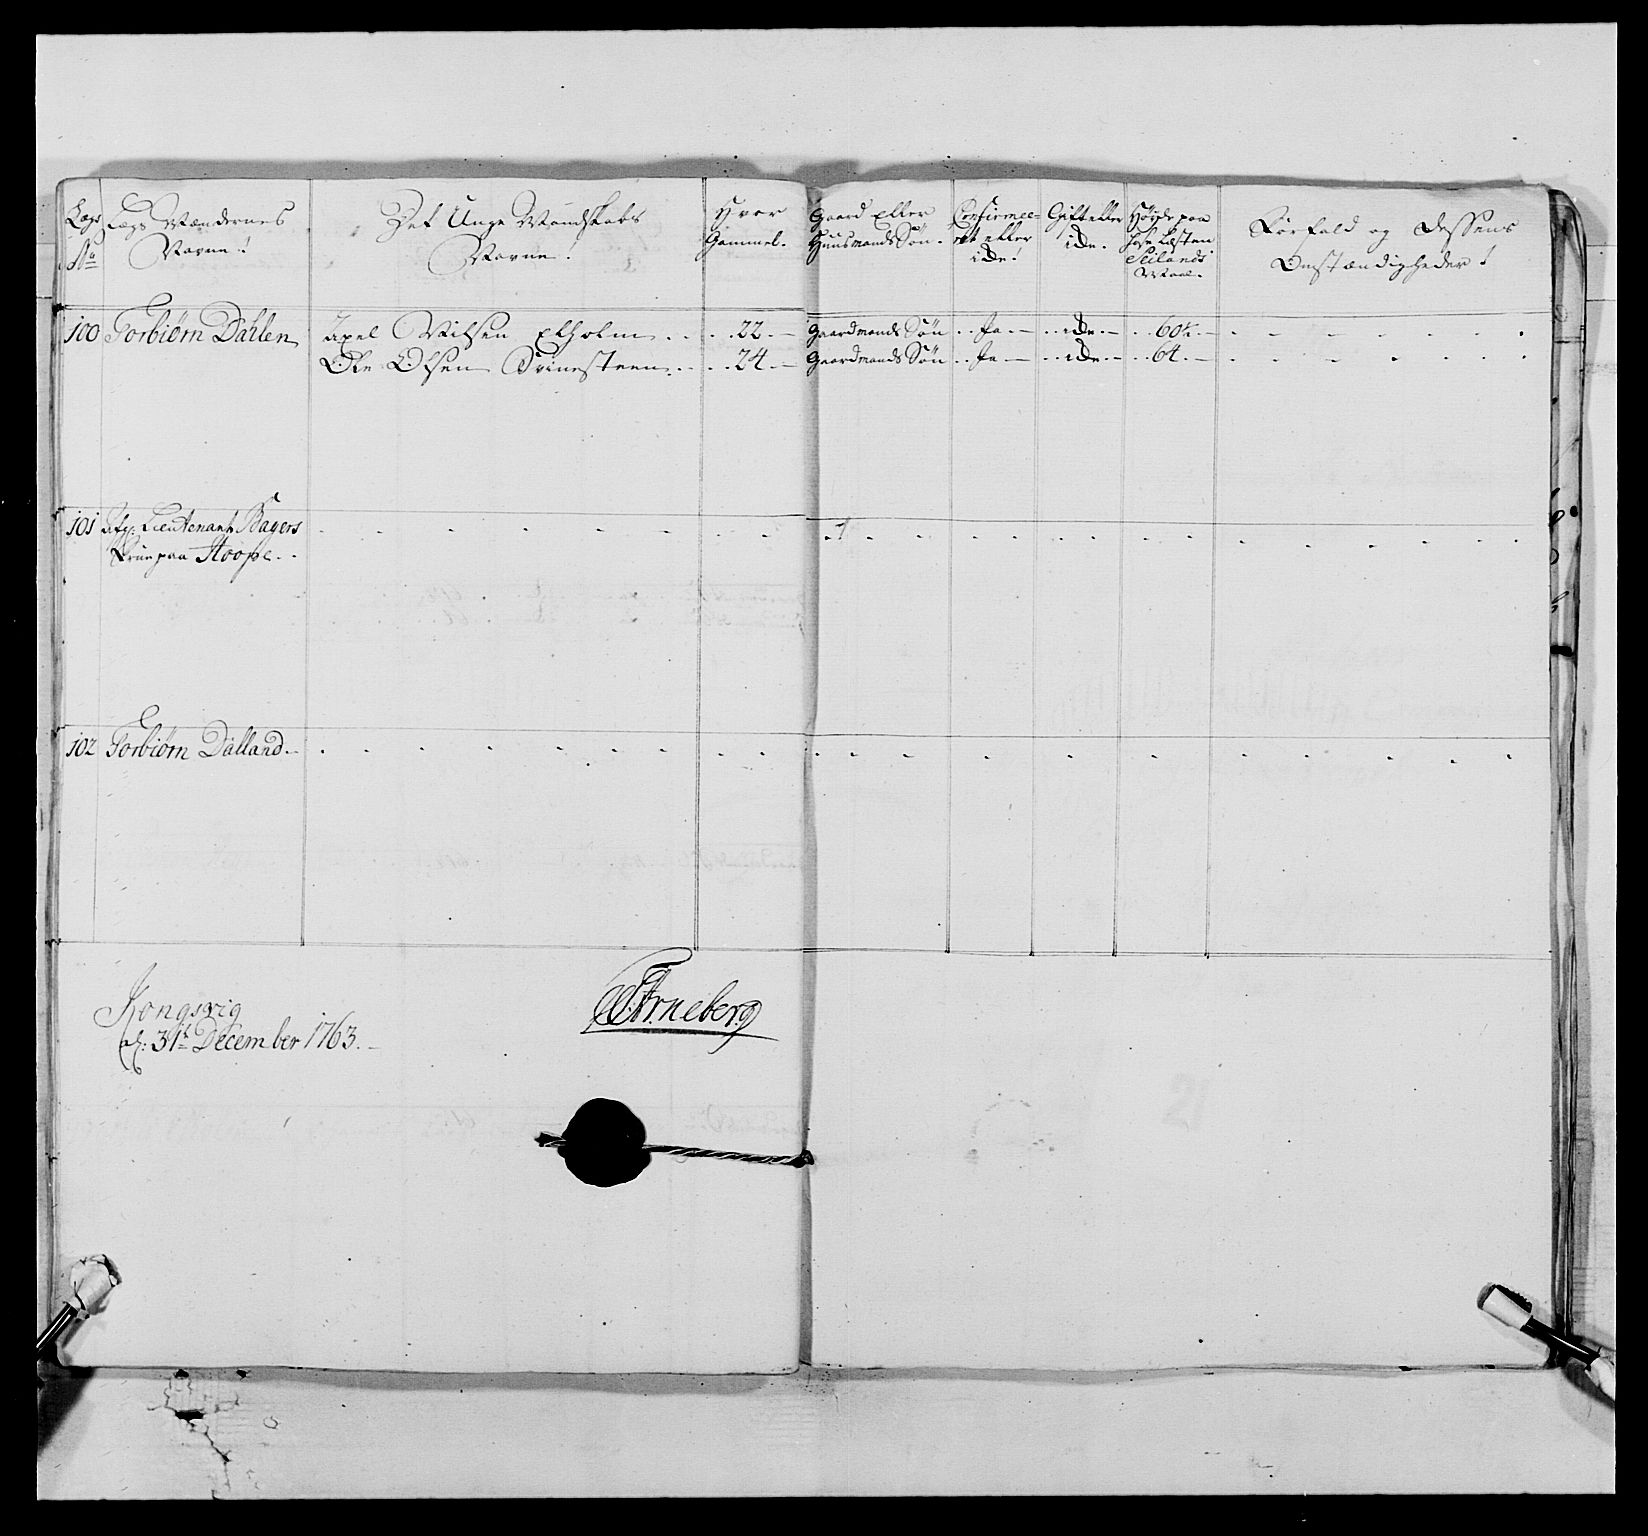 Lægs
No
Lægs Mændernes
Navne!
Det Unge Mandskabs
Navne.
Hvor
Gammel.
Gaard Eller
Huusmands Søn.
Confirmee-
ret eller
icke!
Gift eller
icke.
Høyde paa
Hose Læsten
Seilands
Maal.
Forfald og dessens
Omstændigheder!
100 Torbiørn Dahlen Axel Nilsen Ekholm 22 Gaardmands Søn Ja icke 60¼
Ole Olsen Svinesteen 24 Gaardmands Søn Ja icke 64
101 Afg: Lieutenant Bagers
Frue paa Hoope
102 Torbiørn Dalland
Kongsvig
d: 31te December 1763.
Arneberg